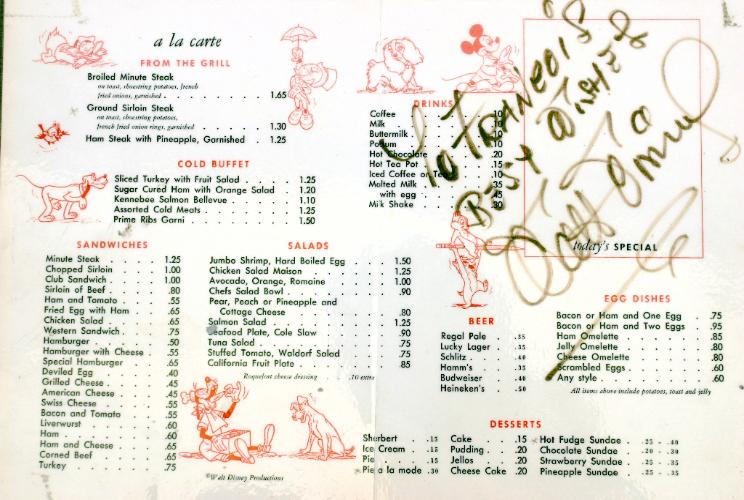 a la carte
FROM THE GRILL
Broiled Minute Steak
on toast, shoestring potatoes, french
fried onions, garnished . . . . . . . . . 1.65
Ground Sirloin Steak
on toast, shoestring potatoes,
french fried onion rings, garnished . . . . . 1.30
Ham Steak with Pineapple, Garnished . 1.25
COLD BUFFET
Sliced Turkey with Fruit Salad . . . . 1.25
Sugar Cured Ham with Orange Salad . . . 1.20
Kennebec Salmon Bellevue . . . . . 1.10
Assorted Cold Meats . . . . . . 1.25
Prime Ribs Garni . . . . . . . 1.50
SANDWICHES
Minute Steak . . . . 1.25
Chopped Sirloin . . . 1.00
Club Sandwich . . . . 1.00
Sirloin of Beef . . . . .80
Ham and Tomato . . . .55
Fried Egg with Ham . . .65
Chicken Salad . . . . .65
Western Sandwich . . . .75
Hamburger . . . . . .50
Hamburger with Cheese . .55
Special Hamburger . . . .65
Deviled Egg . . . . .40
Grilled Cheese . . . . .45
American Cheese . . . .45
Swiss Cheese . . . . .55
Bacon and Tomato . . . .55
Liverwurst . . . . . .60
Ham . . . . . . . .60
Ham and Cheese . . . .65
Corned Beef . . . . . .65
Turkey . . . . . . .75
SALADS
Jumbo Shrimp, Hard Boiled Egg . . . 1.50
Chicken Salad Maison . . . . . 1.25
Avocado, Orange, Romaine . . . . 1.00
Chefs Salad Bowl . . . . . . .90
Pear, Peach or Pineapple and
Cottage Cheese . . . . . . .80
Salmon Salad . . . . . . . 1.25
Seafood Plate, Cole Slaw . . . . .90
Tuna Salad . . . . . . . .75
Stuffed Tomato, Waldorf Salad . . . .75
California Fruit Plate . . . . . .85
Roquefort cheese dressing .10 extra
©Walt Disney Productions
DRINKS
Coffee . . . . . . . .10
Milk . . . . . . . . .10
Buttermilk . . . . . . .10
Postum . . . . . . . .10
Hot Chocolate . . . . .20
Hot Tea Pot . . . . . .15
Iced Coffee or Tea . . . .15
Malted Milk . . . . . .35
with egg . . . . . . .45
Milk Shake . . . . . . .30
To FRANCOIS
BEST WISHES
today's SPECIAL
BEER
Regal Pale . .35
Lucky Lager . .35
Schlitz . . . .40
Hamm's . . .35
Budweiser . . .40
Heineken's . . .50
EGG DISHES
Bacon or Ham and One Egg . .75
Bacon or Ham and Two Eggs . .95
Ham Omelette . . . . . .85
Jelly Omelette . . . . . .80
Cheese Omelette . . . . .80
Scrambled Eggs . . . . . .60
Any style . . . . . . . .60
All items above include potatoes, toast and jelly
DESSERTS
Sherbert . .15
Ice Cream . .15
Pie . . . .15
Pie a la mode .30
Cake . . .15
Pudding . . .20
Jellos . . .20
Cheese Cake .20
Hot Fudge Sundae . .25 - .40
Chocolate Sundae . .20 - .30
Strawberry Sundae . .25 - .35
Pineapple Sundae . .25 - .35